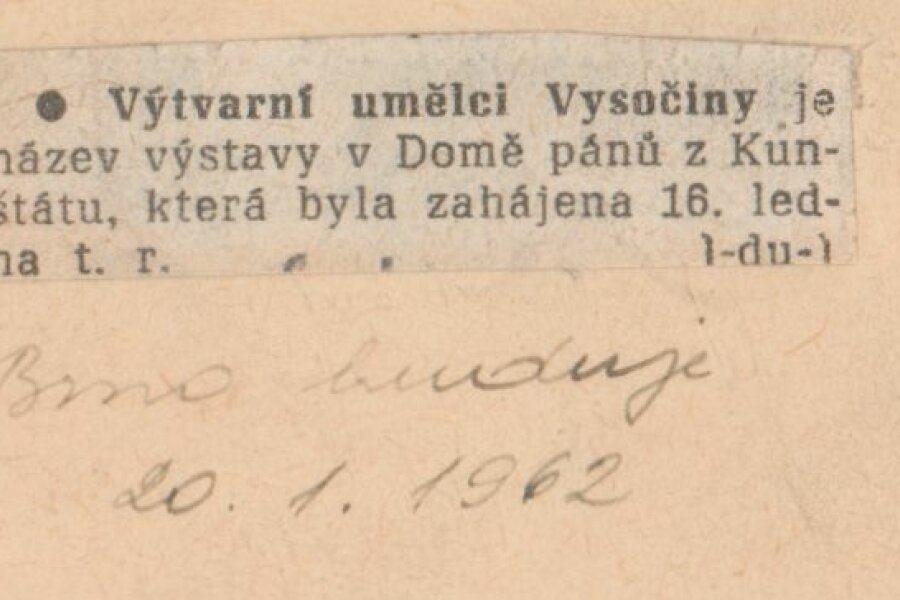 ● Výtvarní umělci Vysočiny je
název výstavy v Domě pánů z Kun-
štátu, která byla zahájena 16. led-
na t. r. l-du-l
Brno buduje
20. 1. 1962